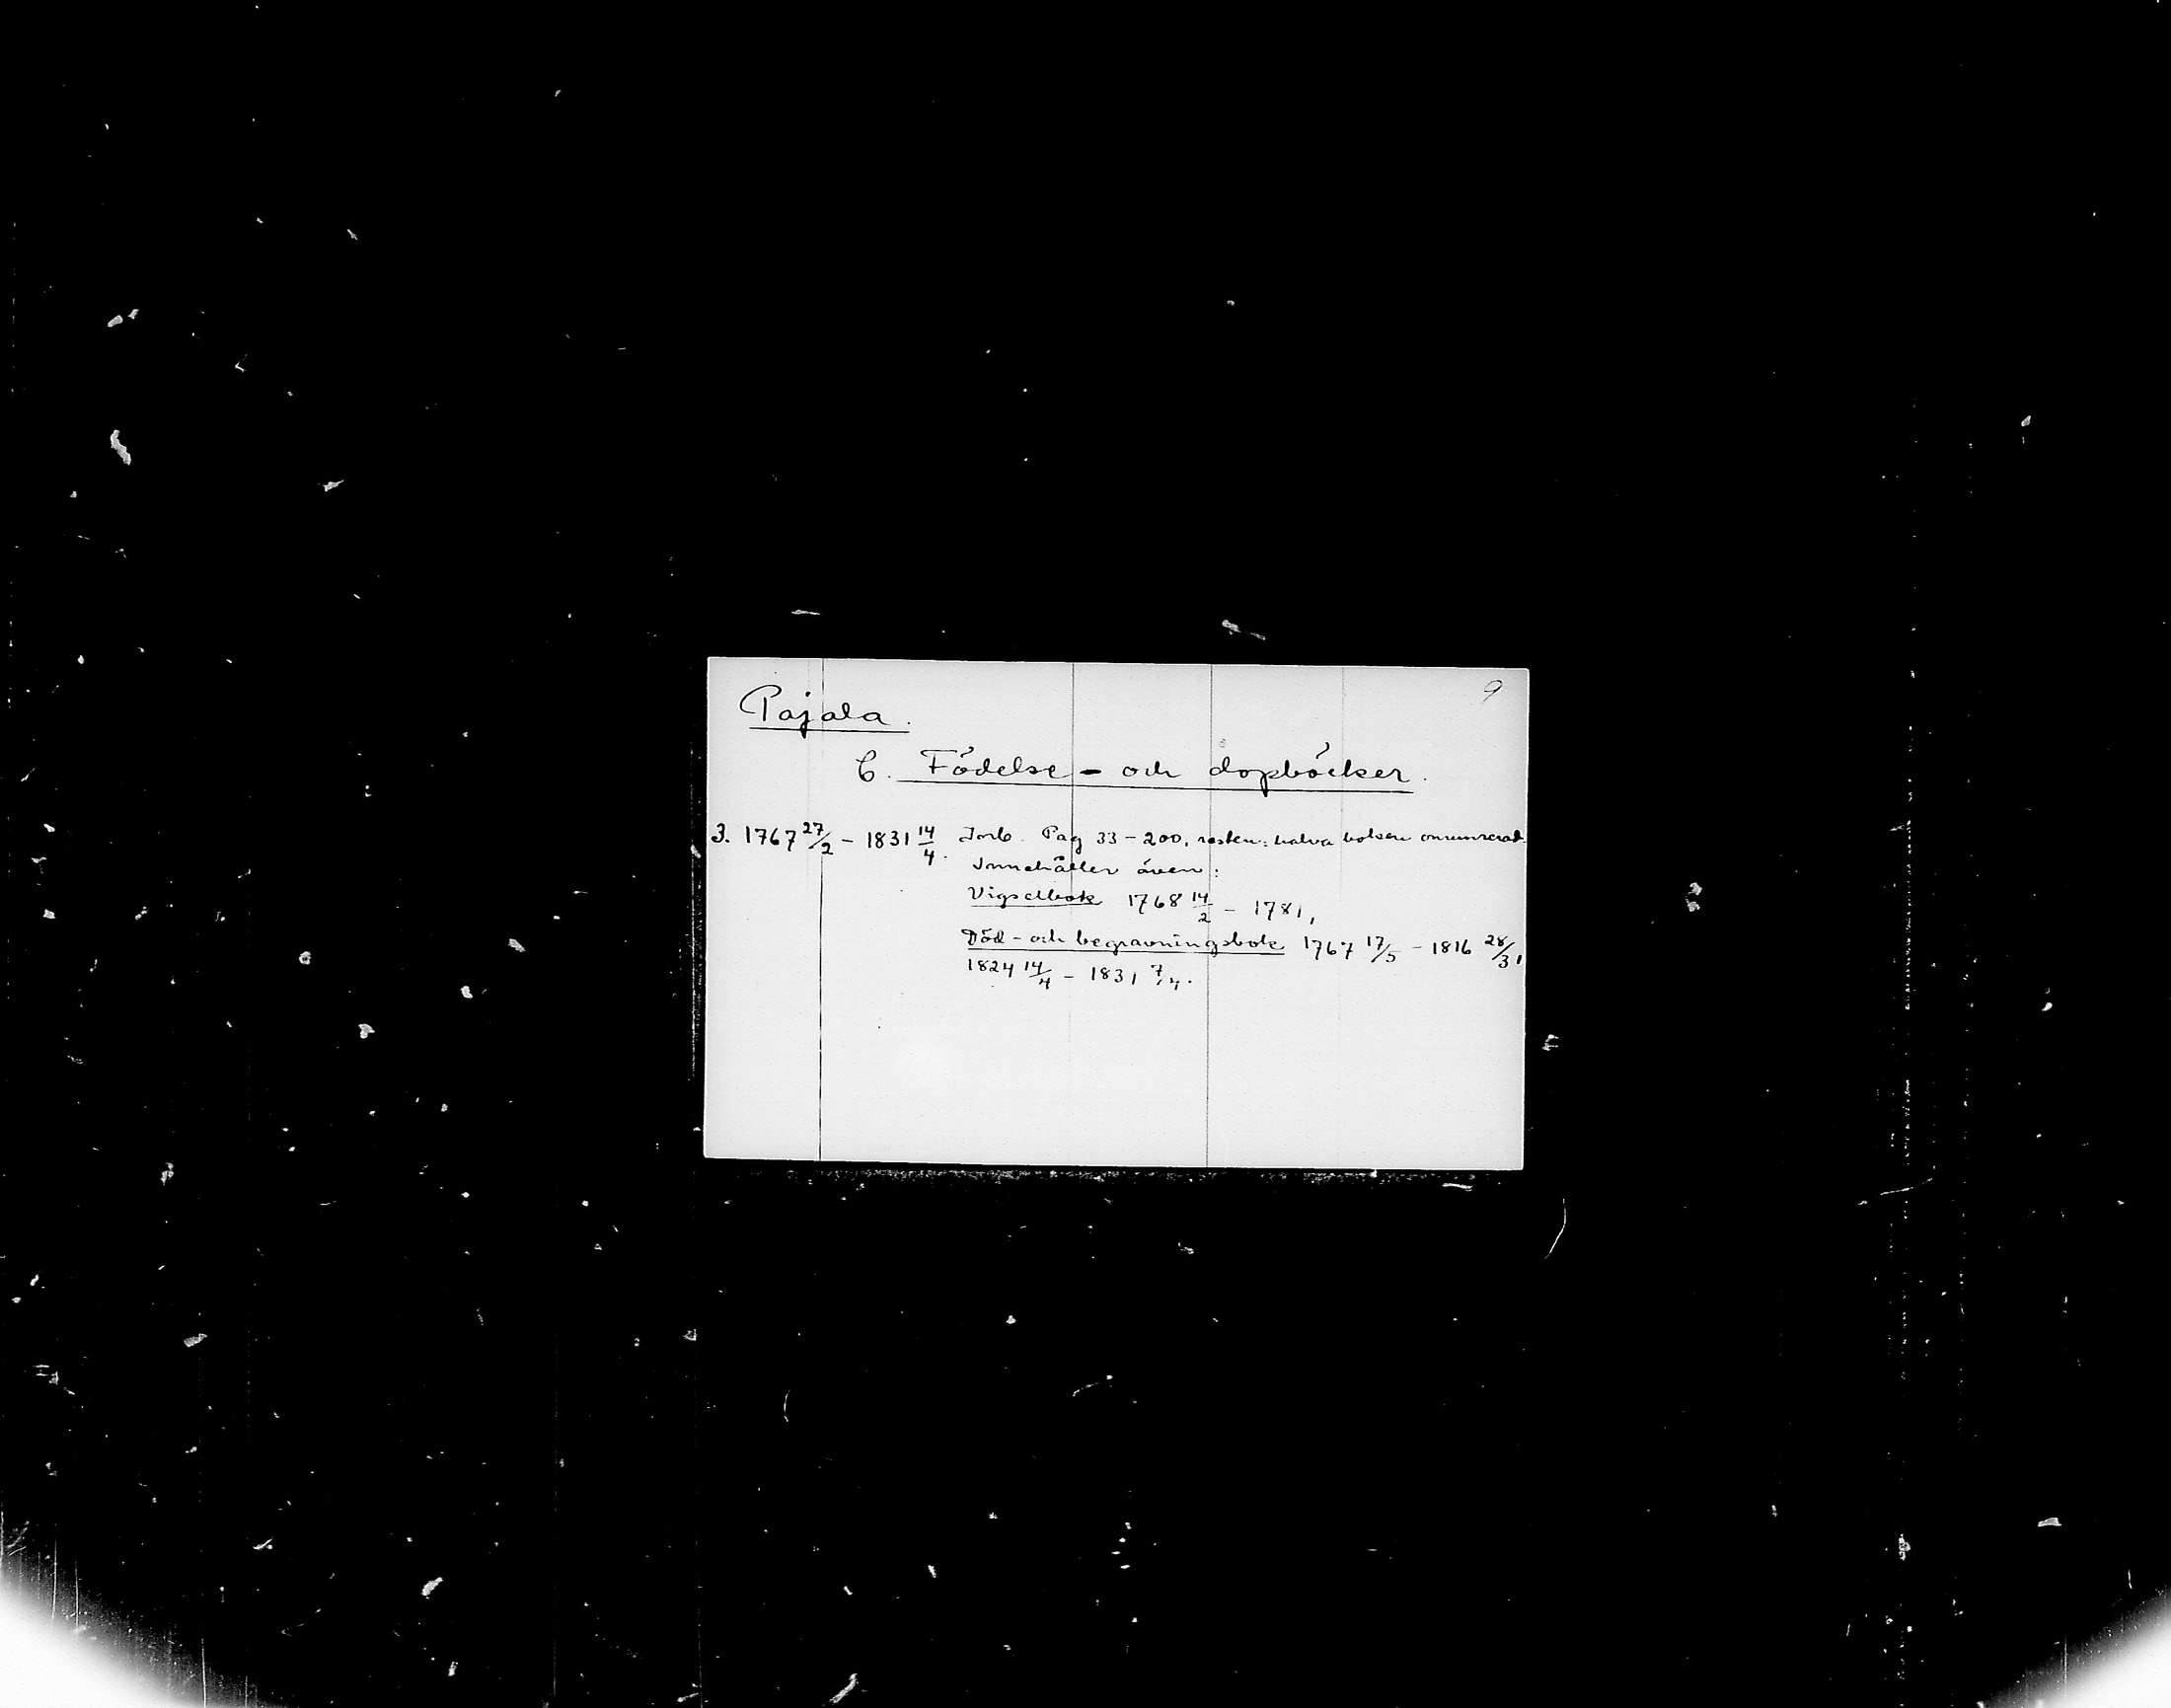 9
Pajala.
C. Födelse- och dopböcker.
3. 1767 27/2 - 1831 14/4. Inb. Pag 33-200, resten: halva boken onumrerad.
Innehåller även:
Vigselbok 1768 14/2 - 1781,
Död- och begravningsbok 1767 17/5 - 1816 28/3,
1824 14/4 - 1831 7/4.